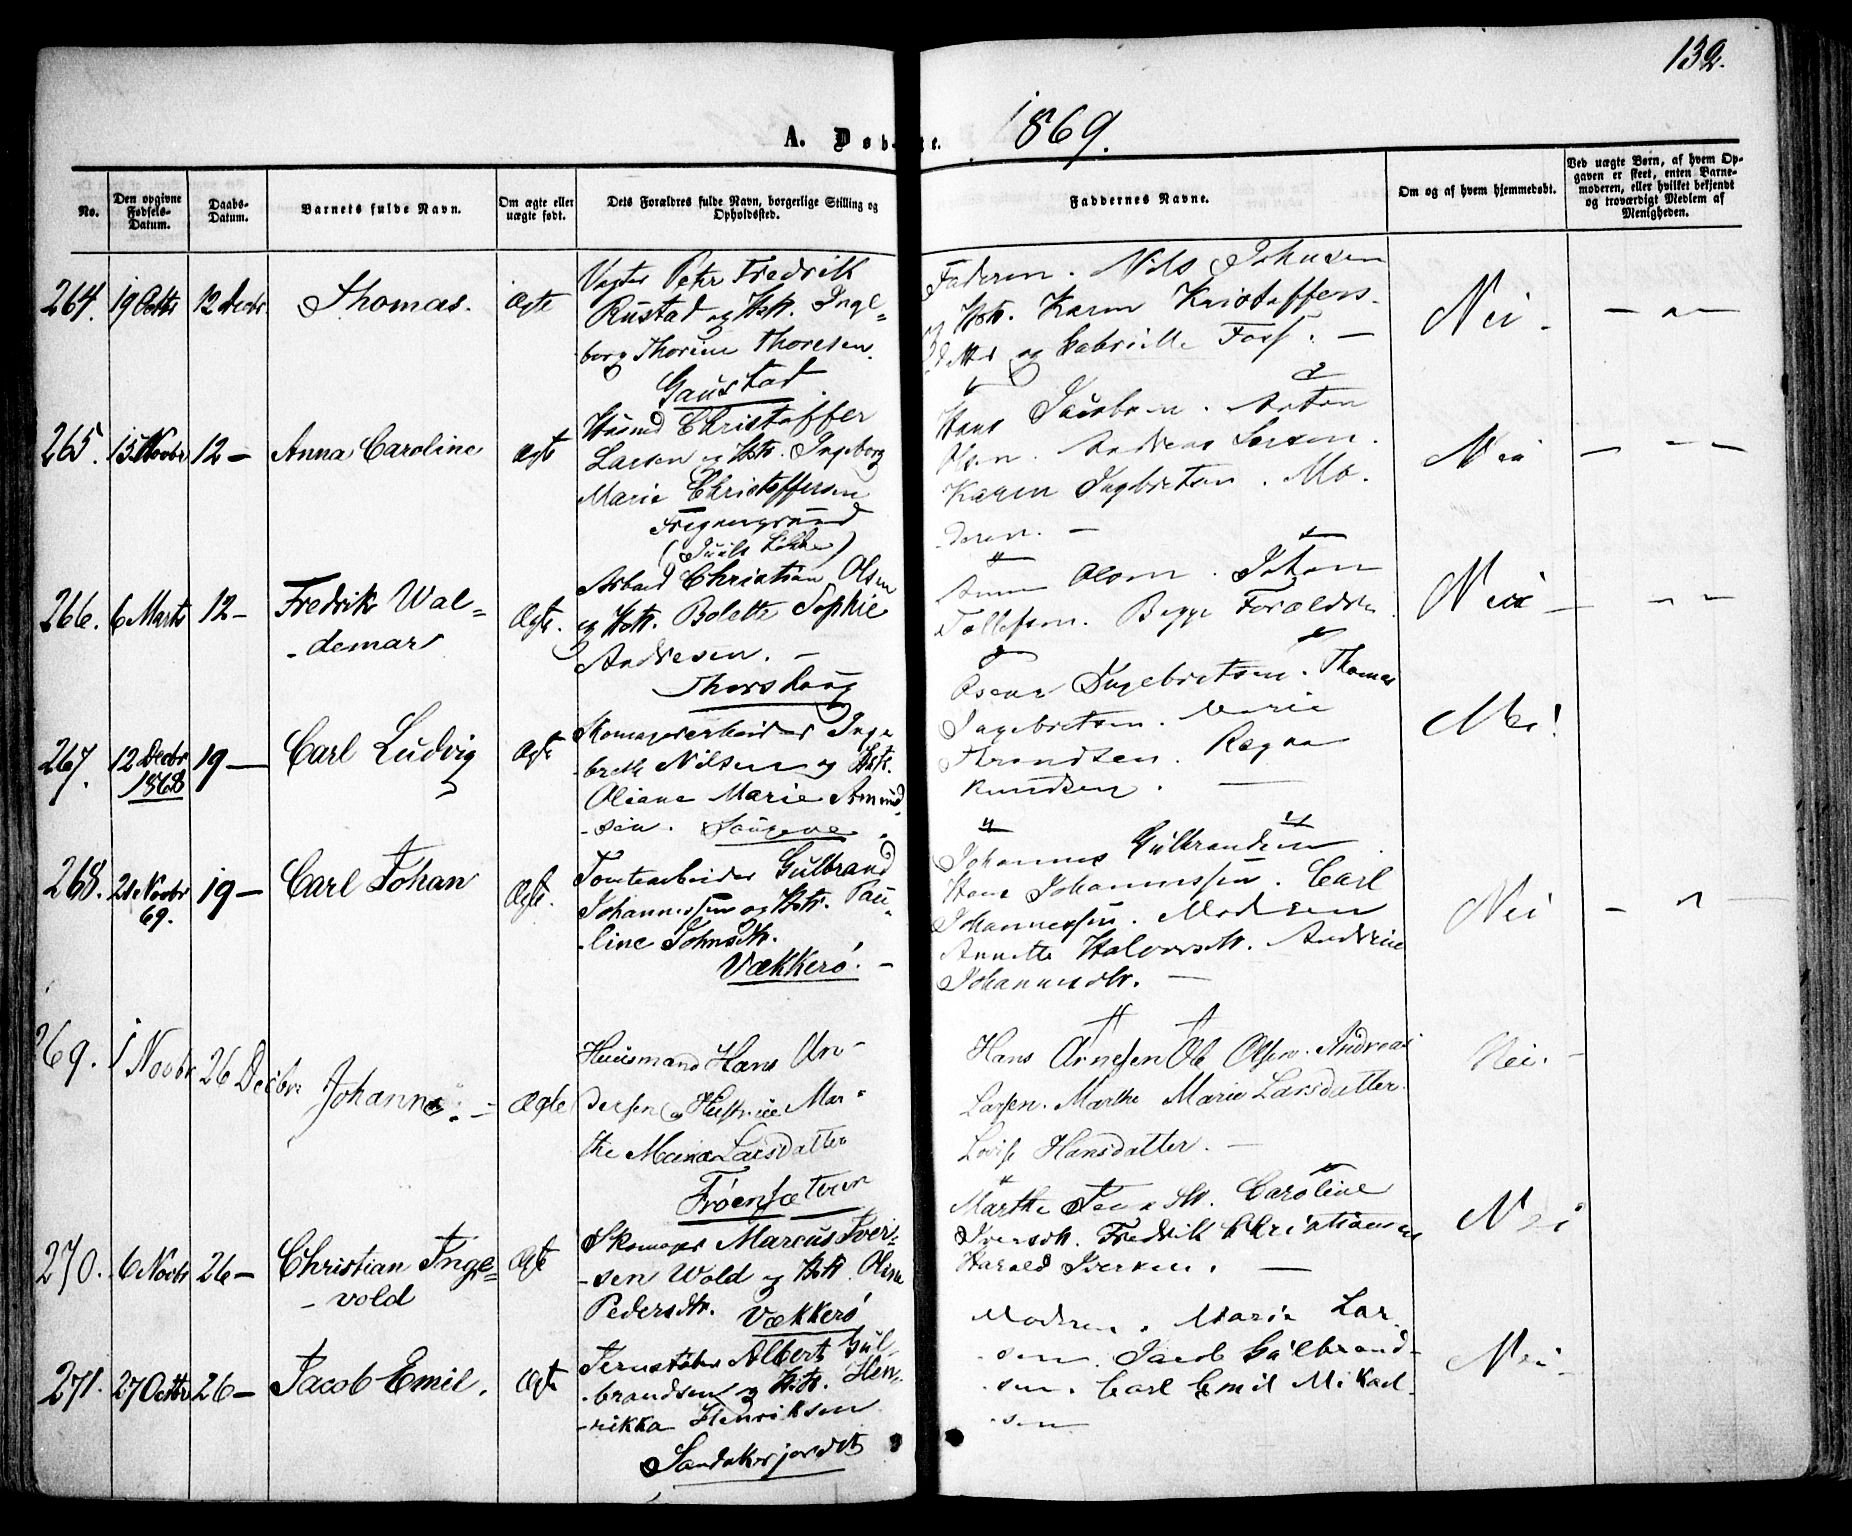 132.
A. Døb te. 1869.
No.
Den opgivne Fødsels-Datum.
Daabs-Datum.
Barnets fulde Navn.
Om ægte eller uægte født.
Dets Forældres fulde Navn, borgerlige Stilling og Opholdssted.
Faddernes Navne.
Om og af hvem hjemmedøbt.
Ved uægte Børn, af hvem Opgaven er skeet, enten Barnemoderen, eller hvilket bekjendt og troværdigt Medlem af Menigheden.
264. 19 Octbr 12 Decbr. Thomas. Ægte
Petr Fredrik
Rustad og Hstr. Inge-
borg Thorine Thoresen.
Gaustad
Faderen. Nils Johnsen
Hstr. Karen Kristoffers-
datter og Gabrielle Foss. —
Nei - — " —
265. 15 Novbr 12 — Anna Caroline Ægte
Husmd Christoffer
Larsen og Hstr. Ingeborg
Marie Christoffersen
Frognergrund
(Juels Løkke)
Hans Jacobsen. Anton
Olsen. Andreas Larsen.
Karen Ingebretsen. Mo-
deren. —
Nei — — —
266. 6 Marts 12 — Fredrik Wal-
demar Ægte.
Arbeid Christian Olsen
og Hstr. Bolette Sophie
Andresen. —
Thorshaug
Anne Olsen. Johan
Tollefsen. Begge Forældre
Nei — — —
267. 12 Decbr 1868 19 — Carl Ludvig Ægte
Skomagerarbeider Inge
breth Nilsen og Hstr.
Oliane Marie Amund-
sen.
Oscar Ingebretsen. Thomas
Ingebretsen. Marie
Trondsen. Ragna
Knudsen. —
Nei!
268. 21 Novbr 69. 19 — Carl Johan Ægte.
Tomtearbeider Gulbrand
Johannessen og Hstr. Pau-
line Johnsdtr.
Vækkerø. —
Johannes Gulbrandsen.
Hans Johannessen. Carl
Johannessen. Moderen
Annette Halvorsdtr. Andrine
Johannesdtr. —
Nei — " —
269. 1 Novbr 26 Decbr. Johanne. — Ægte
Huusmand Hans An-
dersen og Hustrue Mar-
the Maria Larsdatter
Frøensæteren
Hans Arnesen Ole Olsen. Andreas
Larsen. Marthe Marie Larsdatter.
Lovise Hansdatter. —
Nei. —
270. 6 Novbr 26 — Christian Inge-
vold Ægte
Skomager Marcus Iver-
sen Wold og Hstr. Oline
Pedersdtr. Vækkerø
Marthe Caroline
Iversdtr. Fredrik Christiansen
Harald Iversen. —
Nei
271. 27 Octbr 26 — Jacob Emil. Ægte
Jernstøber Albert Gul-
brandsen og Hstr. Hen-
rikka Henriksen
Sandakerjordet
Moderen. Marie Lar-
sen. Jacob Gulbrand-
sen. Carl Emil Mikael-
sen
Nei